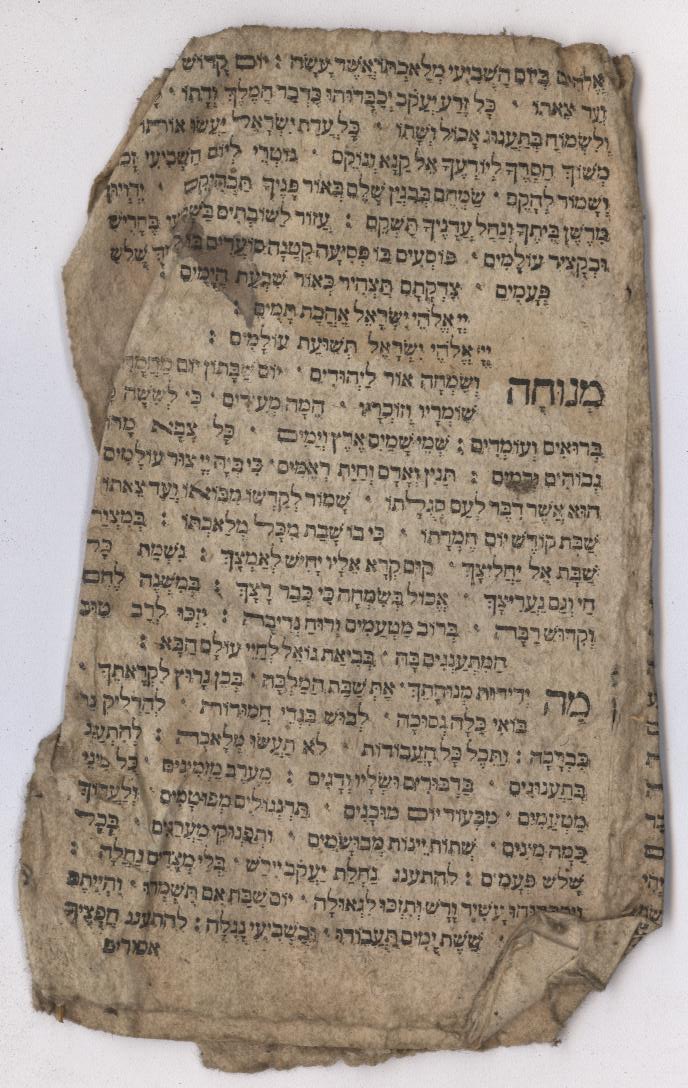 אֱלֹהִים בַּיּוֹם הַשְּׁבִיעִי מְלַאכְתּוֹ אֲשֶׁר עָשָׂה : יוֹם קָדוֹשׁ
וְעַד צֵאתוֹ · כָּל זֶרַע יַעֲקֹב יְכַבְּדוּהוּ כִּדְבַר הַמֶּלֶךְ וְדָתוֹ ·
וְלִשְׂמוֹחַ בְּתַעֲנוּג אָכוֹל וְשָׁתוֹ · כָּל עֲדַת יִשְׂרָאֵל יַעֲשׂוּ אוֹתוֹ
מְשׁוֹךְ חַסְדְּךָ לְיוֹדְעֶיךָ אֵל קַנָּא וְנוֹקֵם · נוֹטְרֵי לַיּוֹם הַשְּׁבִיעִי
וְשָׁמוֹר לְהָקֵם · שַׂמְּחֵם בְּבִנְיַן שָׁלֵם בְּאוֹר פָּנֶיךָ תַּבְהִיקֵם · יִרְוְיוּן
מִדֶּשֶׁן בֵּיתֶךָ וְנַחַל עֲדָנֶיךָ תַשְׁקֵם : עֲזוֹר לַשּׁוֹבְתִים בֶּחָרִישׁ
וּבַקָּצִיר עוֹלָמִים · פּוֹסְעִים בּוֹ פְּסִיעָה קְטַנָּה סוֹעֲדִים בּוֹ שָׁלֹשׁ
פְּעָמִים · צִדְקָתָם תַּצְהִיר כְּאוֹר שִׁבְעַת הַיָּמִים :
יְיָ אֱלֹהֵי יִשְׂרָאֵל אַהֲבַת תָּמִים :
יְיָ אֱלֹהֵי יִשְׂרָאֵל תְּשׁוּעַת עוֹלָמִים :
מְנוּחָה וְשִׂמְחָה אוֹר לַיְּהוּדִים · יוֹם שַׁבָּתוֹן יוֹם מַחֲמַדִּים
שׁוֹמְרָיו וְזוֹכְרָיו · הֵמָּה מְעִידִים · כִּי לְשִׁשָּׁה
בְּרוּאִים וְעוֹמְדִים : שְׁמֵי שָׁמַיִם אֶרֶץ וְיַמִּים · כָּל צְבָא מָרוֹ
גְבוֹהִים וְרָמִים : תַּנִּין וְאָדָם וְחַיַּת רְאֵמִים · כִּי בְּיָהּ יְיָ צוּר עוֹלָמִים
הוּא אֲשֶׁר דִּבֶּר לְעַם סְגֻלָּתוֹ · שָׁמוֹר לְקַדְּשׁוֹ מִבּוֹאוֹ וְעַד צֵאתוֹ
שַׁבַּת קוֹדֶשׁ יוֹם חֶמְדָּתוֹ · כִּי בוֹ שָׁבַת מִכָּל מְלַאכְתּוֹ : בְּמִצְוַת
שַׁבָּת אֵל יַחֲלִיצָךְ · קוּם קְרָא אֵלָיו יָחִישׁ לְאַמְּצָךְ : נִשְׁמַת כָּל
חַי וְגַם נַעֲרִיצָךְ · אֱכוֹל בְּשִׂמְחָה כִּי כְּבָר רָצָךְ : בְּמִשְׁנֶה לֶחֶם
וְקִדּוּשׁ רַבָּה · בְּרוֹב מַטְעַמִּים וְרוּחַ נְדִיבָה : יִזְכּוּ לְרַב טוּב
הַמִּתְעַנְּגִים בָּהּ · בְּבִיאַת גּוֹאֵל לְחַיֵּי עוֹלָם הַבָּא :
מַה יְדִידוּת מְנוּחָתֵךְ · אַתְּ שַׁבָּת הַמַּלְכָּה · בְּכֵן נָרוּץ לִקְרָאתֵךְ ·
בּוֹאִי כַלָּה נְסוּכָה · לְבוּשׁ בִּגְדֵי חֲמוּדוֹת · לְהַדְלִיק נֵר
בִּבְרָכָה : וַתֵּכֶל כָּל הָעֲבוֹדוֹת · לֹא תַעֲשׂוּ מְלָאכָה : לְהִתְעַנֵּג
בְּתַעֲנוּגִים · בַּרְבּוּרִים וּשְׂלָיו וְדָגִים : מֵעֶרֶב מַזְמִינִים · כָּל מִינֵי
מַטְעַמִּים · מִבְּעוֹד יוֹם מוּכָנִים · תַּרְנְגוֹלִים מְפוּטָּמִים · וְלַעֲרוֹךְ
כַּמָּה מִינִים · שְׁתוֹת יֵינוֹת מְבוּשָּׂמִים · וְתַפְנוּקֵי מַעֲדַנִּים · בְּכָל
שָׁלֹשׁ פְּעָמִים : לְהִתְעַנֵּג נַחֲלַת יַעֲקֹב יִירַשׁ · בְּלִי מְצָרִים נַחֲלָה :
עָשִׁיר וָרָשׁ וְתִזְכּוּ לִגְאוּלָּה · יוֹם שַׁבָּת אִם תִּשְׁמְרוּ · וִהְיִיתֶם
שֵׁשֶׁת יָמִים תַּעֲבוֹדוּ · וּבַשְּׁבִיעִי נָגִילָה : לְהִתְעַנֵּג חֲפָצֶיךָ
אסורים